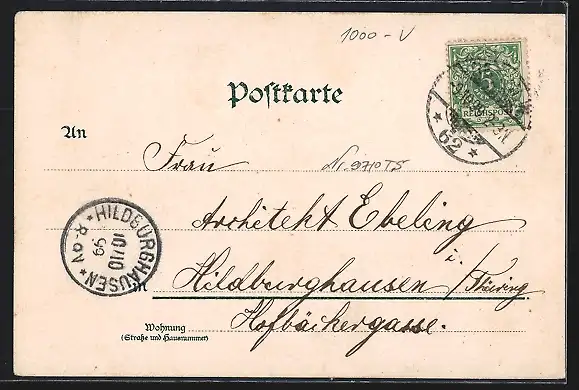 1000 - V
5
REICHSPOST
* 62 *
Postkarte
An
Frau
Nr. 9710 TS
Architekt Ebeling
HILDBURGHAUSEN
10/10
99
8-9V
in Hildburghausen i./Thüring
Hofbäckergasse.
Wohnung
(Straße und Hausnummer)